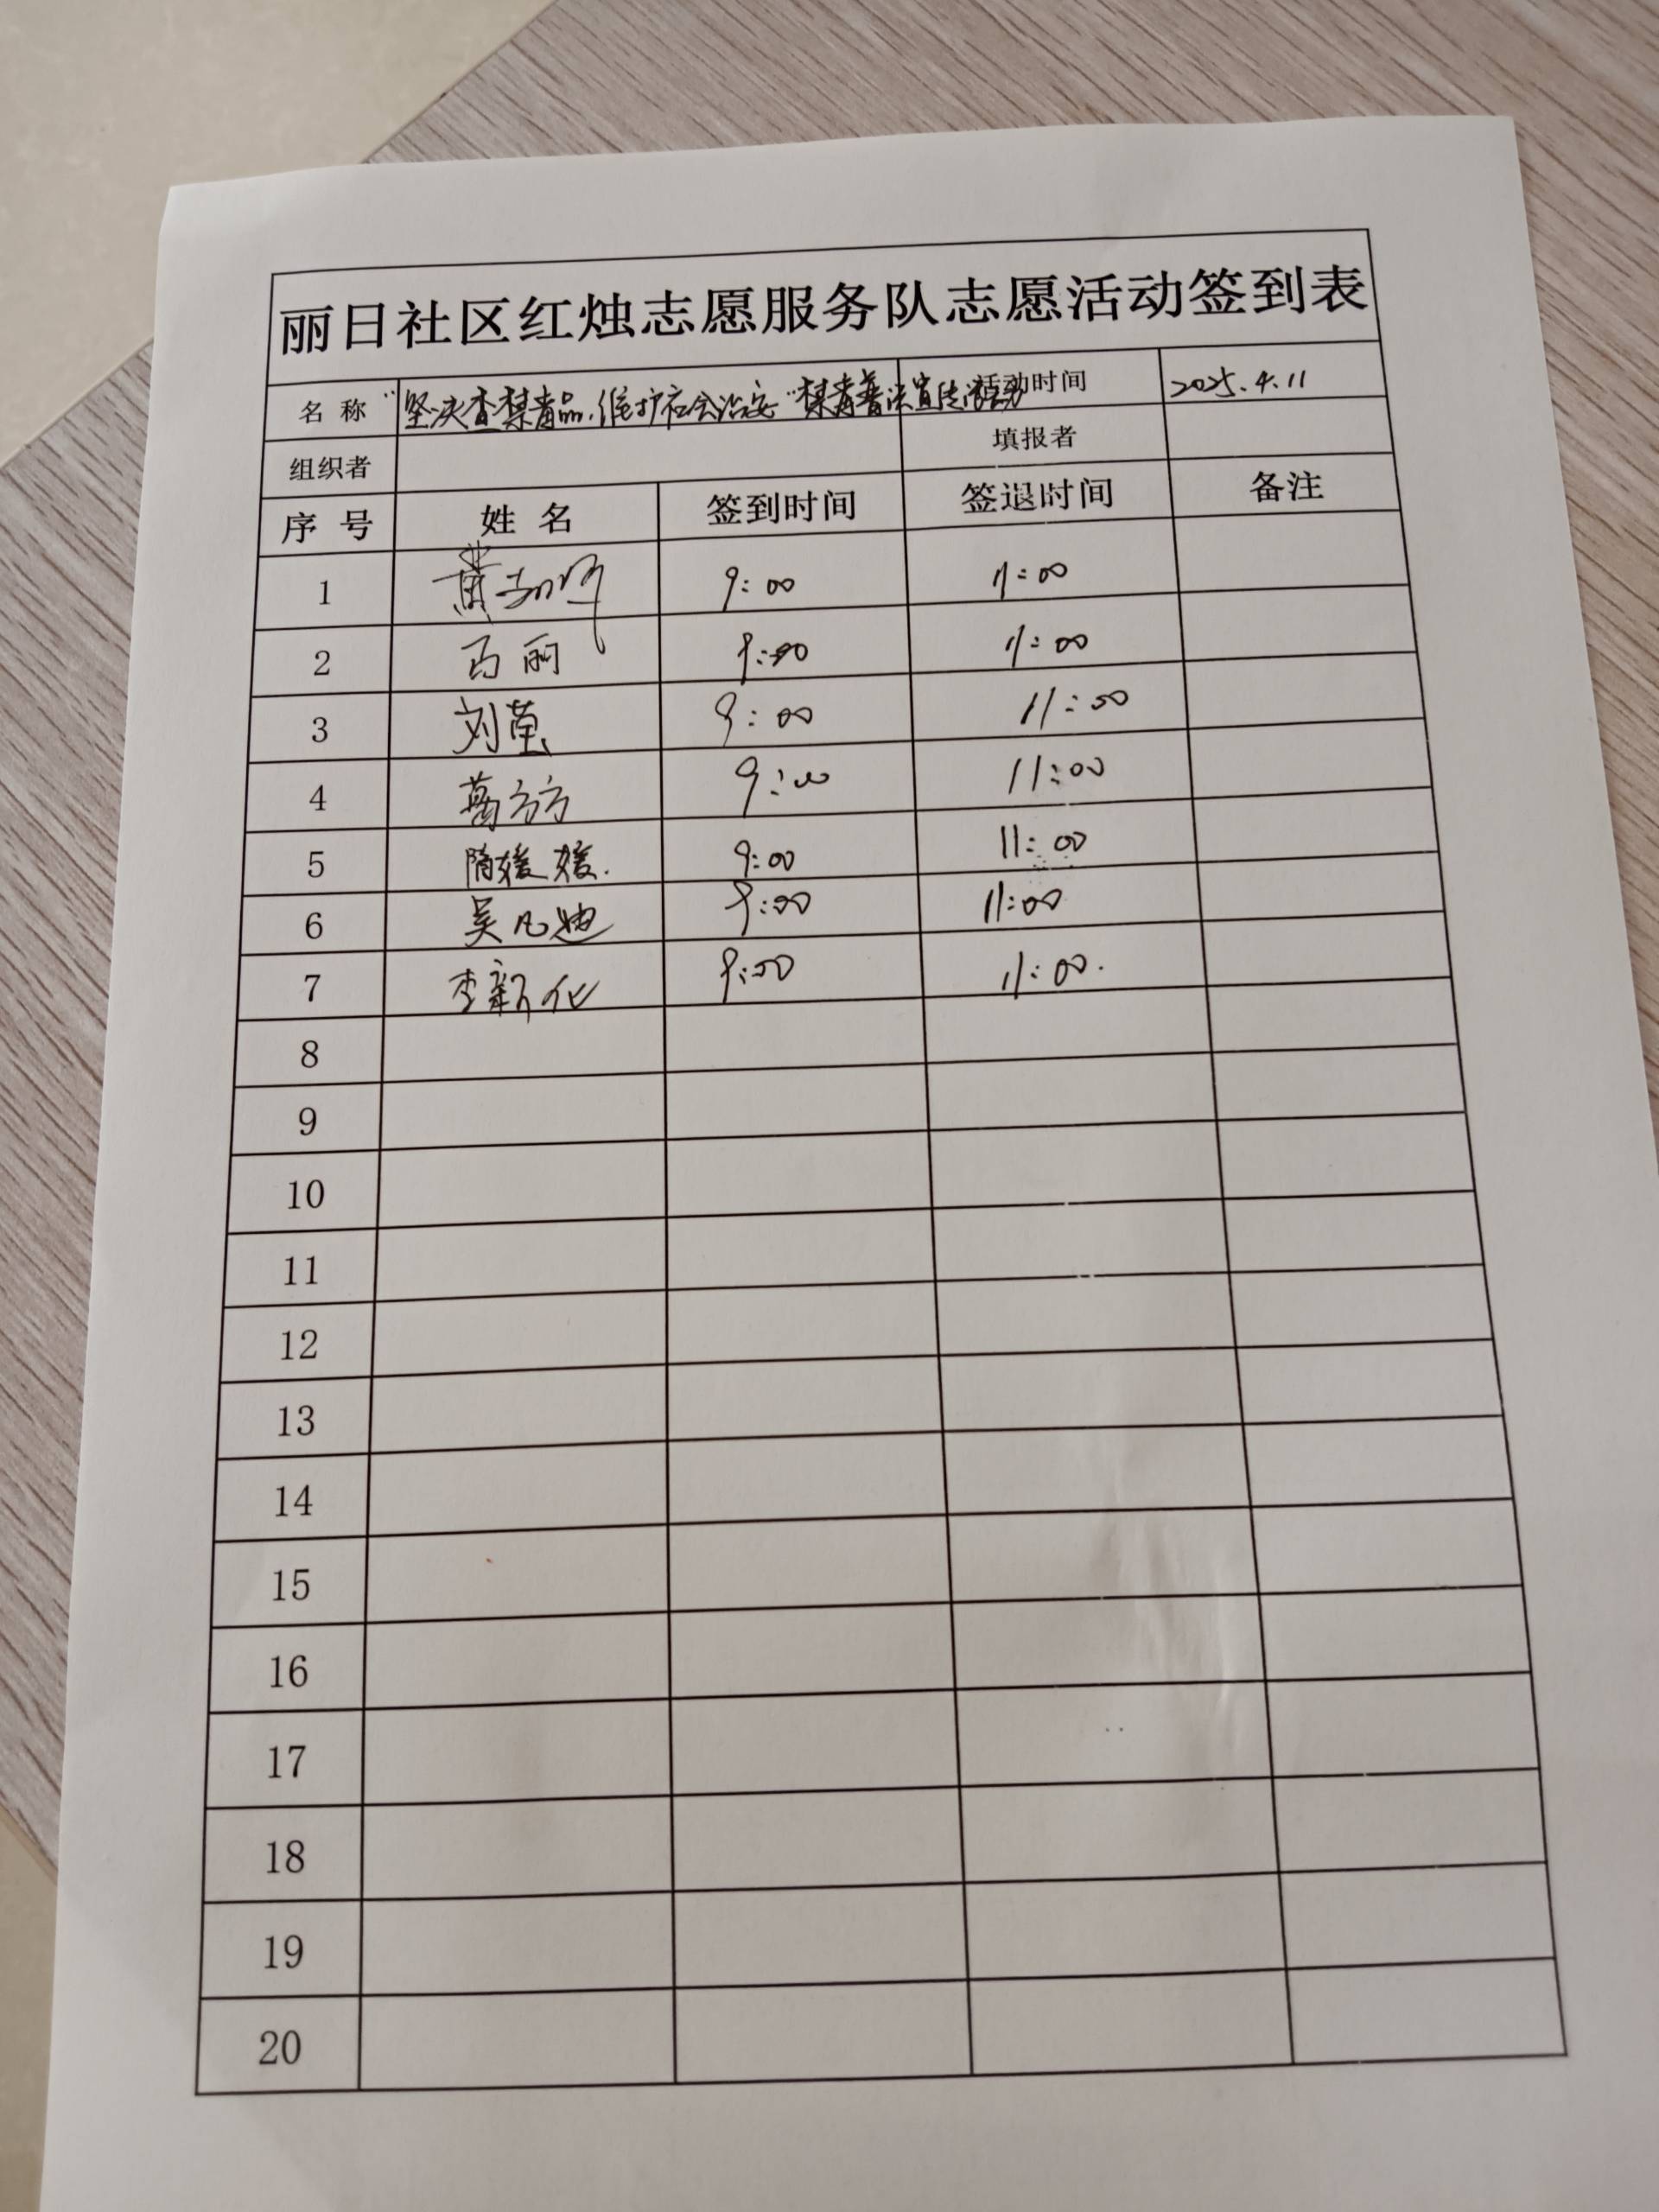 丽日社区红烛志愿服务队志愿活动签到表
名 称 "坚决查禁毒品.维护社会治安"禁毒普法宣传活动 活动时间 2025.4.11
组织者 填报者
序 号 姓 名 签到时间 签退时间 备注
1 黄 9:00 11:00
2 马丽 9:00 11:00
3 刘萤 9:00 11:00
4 葛方方 9:00 11:00
5 隋媛媛. 9:00 11:00
6 吴凡迪 9:00 11:00
7 李新化 9:00 11:00.
8
9
10
11
12
13
14
15
16
17
18
19
20